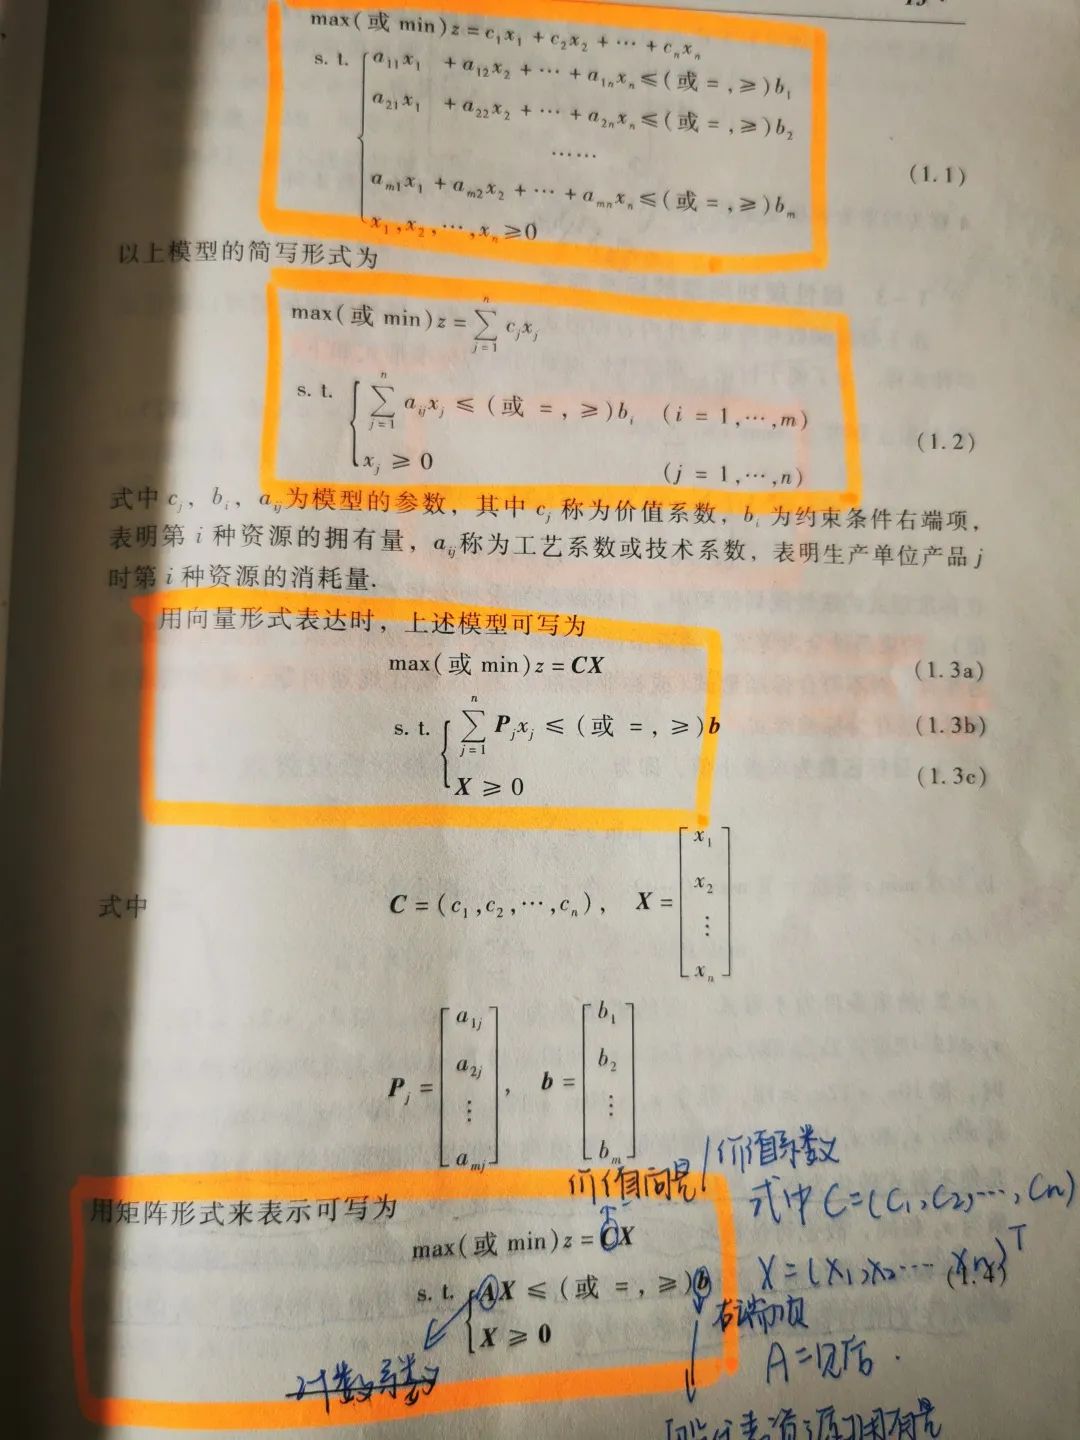 max(或 min)z=c₁x₁+c₂x₂+⋯+cₙxₙ
s. t. { a₁₁x₁ +a₁₂x₂+⋯+a₁ₙxₙ≤(或=,≥)b₁
a₂₁x₁ +a₂₂x₂+⋯+a₂ₙxₙ≤(或=,≥)b₂
……
aₘ₁x₁+aₘ₂x₂+⋯+aₘₙxₙ≤(或=,≥)bₘ (1.1)
x₁,x₂,⋯,xₙ≥0
以上模型的简写形式为
max(或 min)z=∑_{j=1}^{n} c_jx_j
s. t. { ∑_{j=1}^{n} a_{ij}x_j ≤(或 =,≥)b_i (i = 1,⋯,m) (1.2)
x_j ≥ 0 (j = 1,⋯,n)
式中 c_j, b_i, a_{ij}为模型的参数, 其中 c_j 称为价值系数, b_i 为约束条件右端项,
表明第 i 种资源的拥有量, a_{ij}称为工艺系数或技术系数, 表明生产单位产品 j
时第 i 种资源的消耗量.
用向量形式表达时, 上述模型可写为
max(或 min)z=CX (1.3a)
s. t. { ∑_{j=1}^{n} P_jx_j ≤(或 =,≥)b (1.3b)
X ≥ 0 (1.3c)
式中 C=(c₁,c₂,⋯,cₙ), X=[x₁ x₂ ⋮ xₙ]
P_j=[a_{1j} a_{2j} ⋮ a_{mj}], b=[b₁ b₂ ⋮ bₘ]
价值向量/价值系数
用矩阵形式来表示可写为
式中 C=(C₁,C₂,⋯,Cn)
max(或 min)z=CX
X=(X₁,X₂⋯ Xn)ᵀ
(1.4)
s. t. { AX ≤(或 =,≥)b
右端项
X ≥ 0
A=见后.